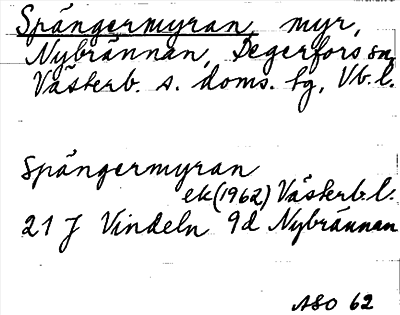 Spångermyran, myr,
Nybrännan, Degerfors sn,
Västerb. s. doms. tg, Vb. l.
Spångermyran
ek (1962) Västerb. l.
21 J Vindeln 9d Nybrännan
ASO 62